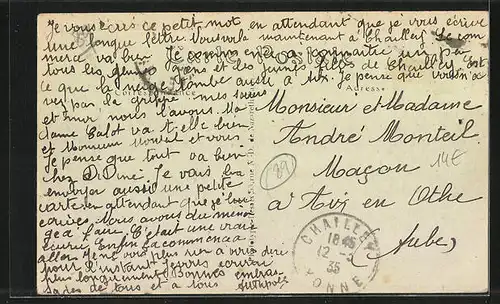 Je vous écris ce petit mot en attendant que je vous écrive
une longue lettre. Vous voilà maintenant à Chailley. Le com
merce va bien. Je commence à connaitre un peu
tous les gens et les jeunes filles de Chailley. Est
ce que la neige tombe aussi à Aix. Je pense que vous n'a
vez pas la grippe mes sœurs
et moi nous l'avons. Ma
dame Calot va t elle bien
et Monsieur
Je pense que tout va bien
chez Je vais lui
envoyer aussi une petite
carte en attendant que je lui
écrive. Nous avons du ména
ge à faire. C'était une vraie
écurie. Enfin ça commence à
aller. Je ne vois plus rien à vous dire
pour l'instant. Je vous écrirai
plus longuement. Bonnes embras
sades de tous et à tous
Correspondance
Adresse
Monsieur et Madame
André Monteil
Maçon
à Aix en Othe
(Aube)
14€
89
CHAILLEY
18 45
12 - 2
35
YONNE